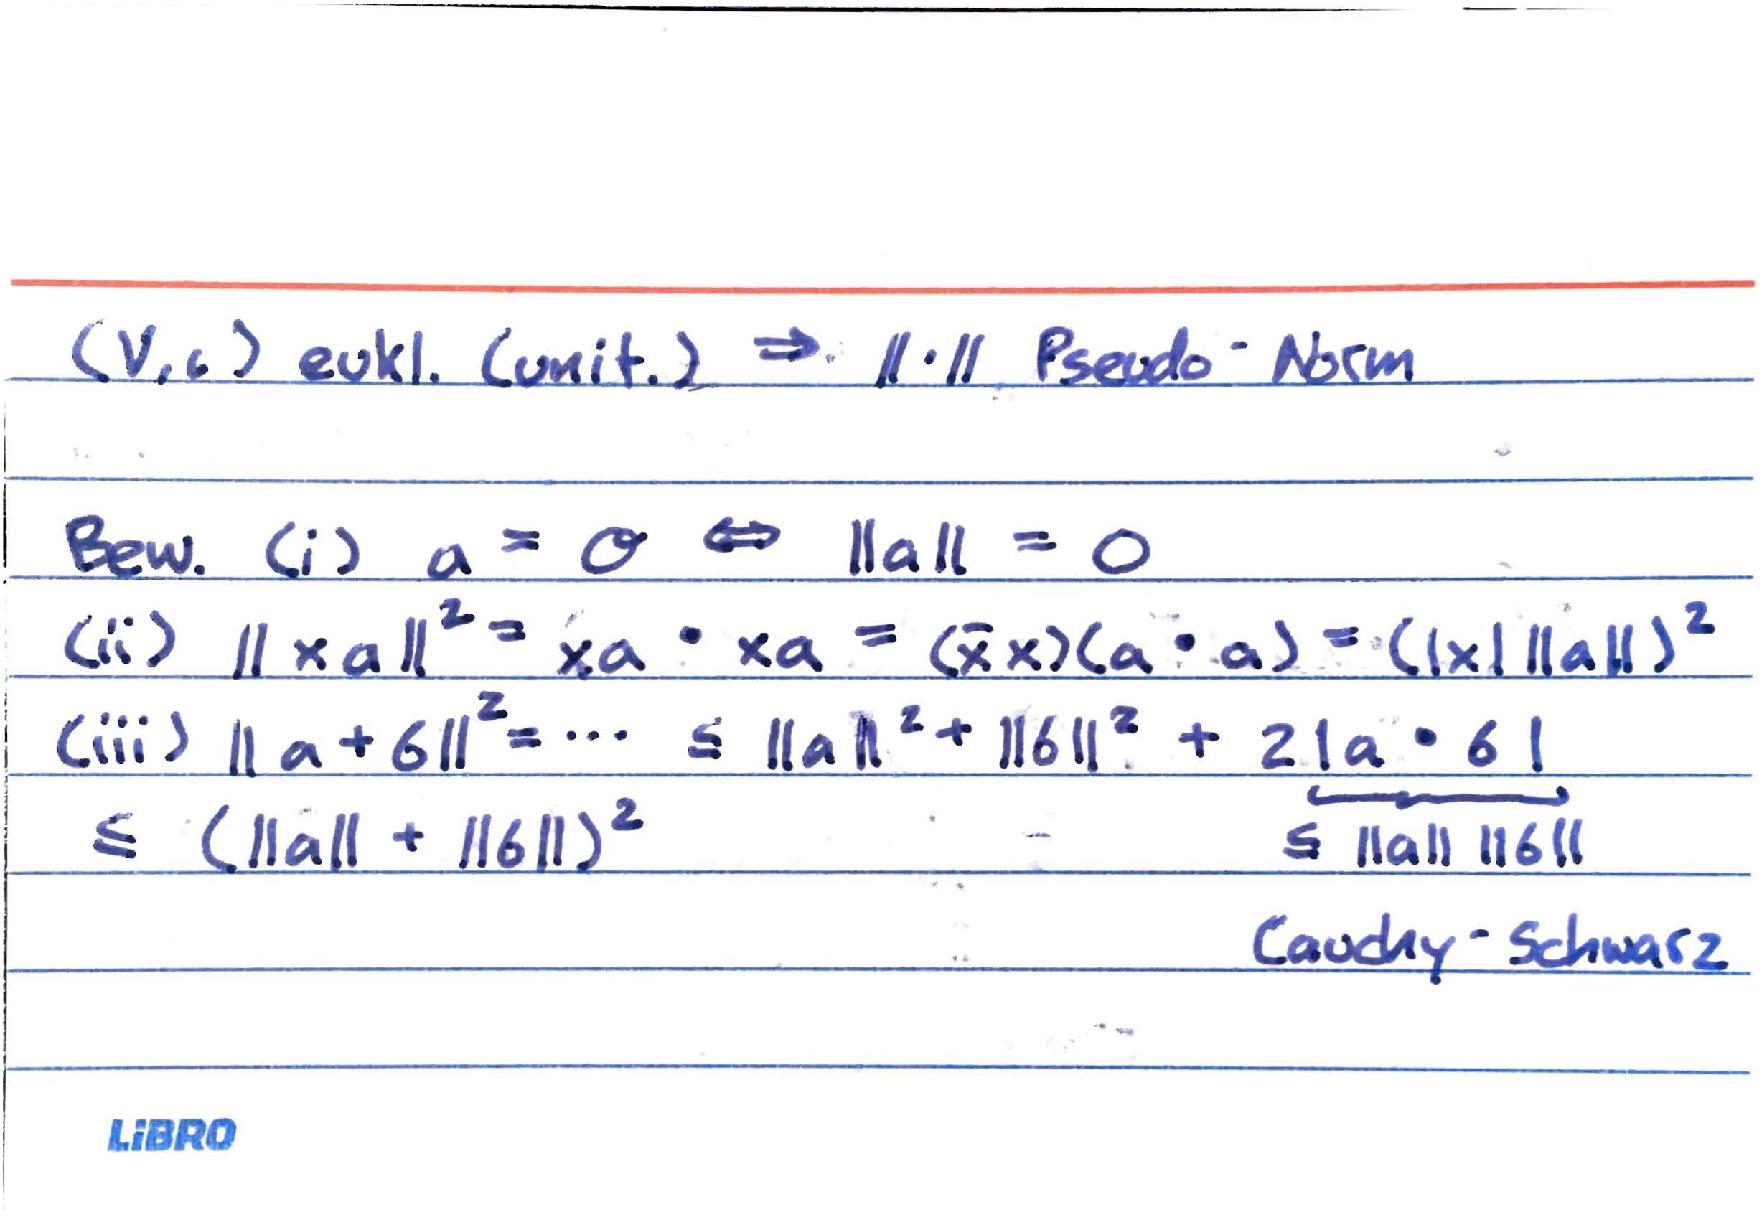 (V,σ) eukl. (unit.) ⇒ ||·|| Pseudo-Norm
Bew. (i) a = o ⇔ ||a|| = 0
(ii) ||xa||² = xa · xa = (x̄x)(a · a) = (|x| ||a||)²
(iii) ||a+b||² = ... ≤ ||a||² + ||b||² + 2|a · b|
≤ (||a|| + ||b||)² ≤ ||a|| ||b||
Cauchy-Schwarz
LiBRO